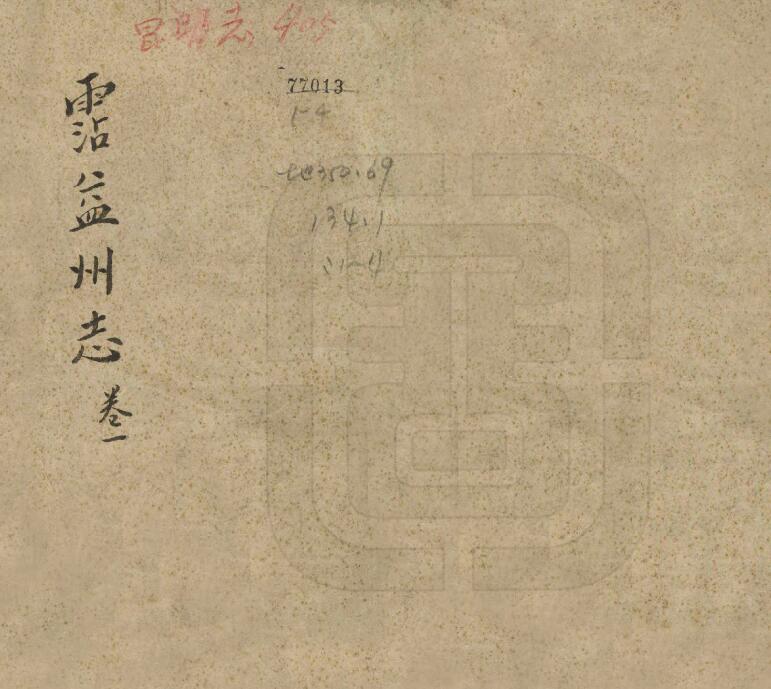 昆明志 405
77013
1-4
地350.69
134.1
:1-4
霑益州志 卷一